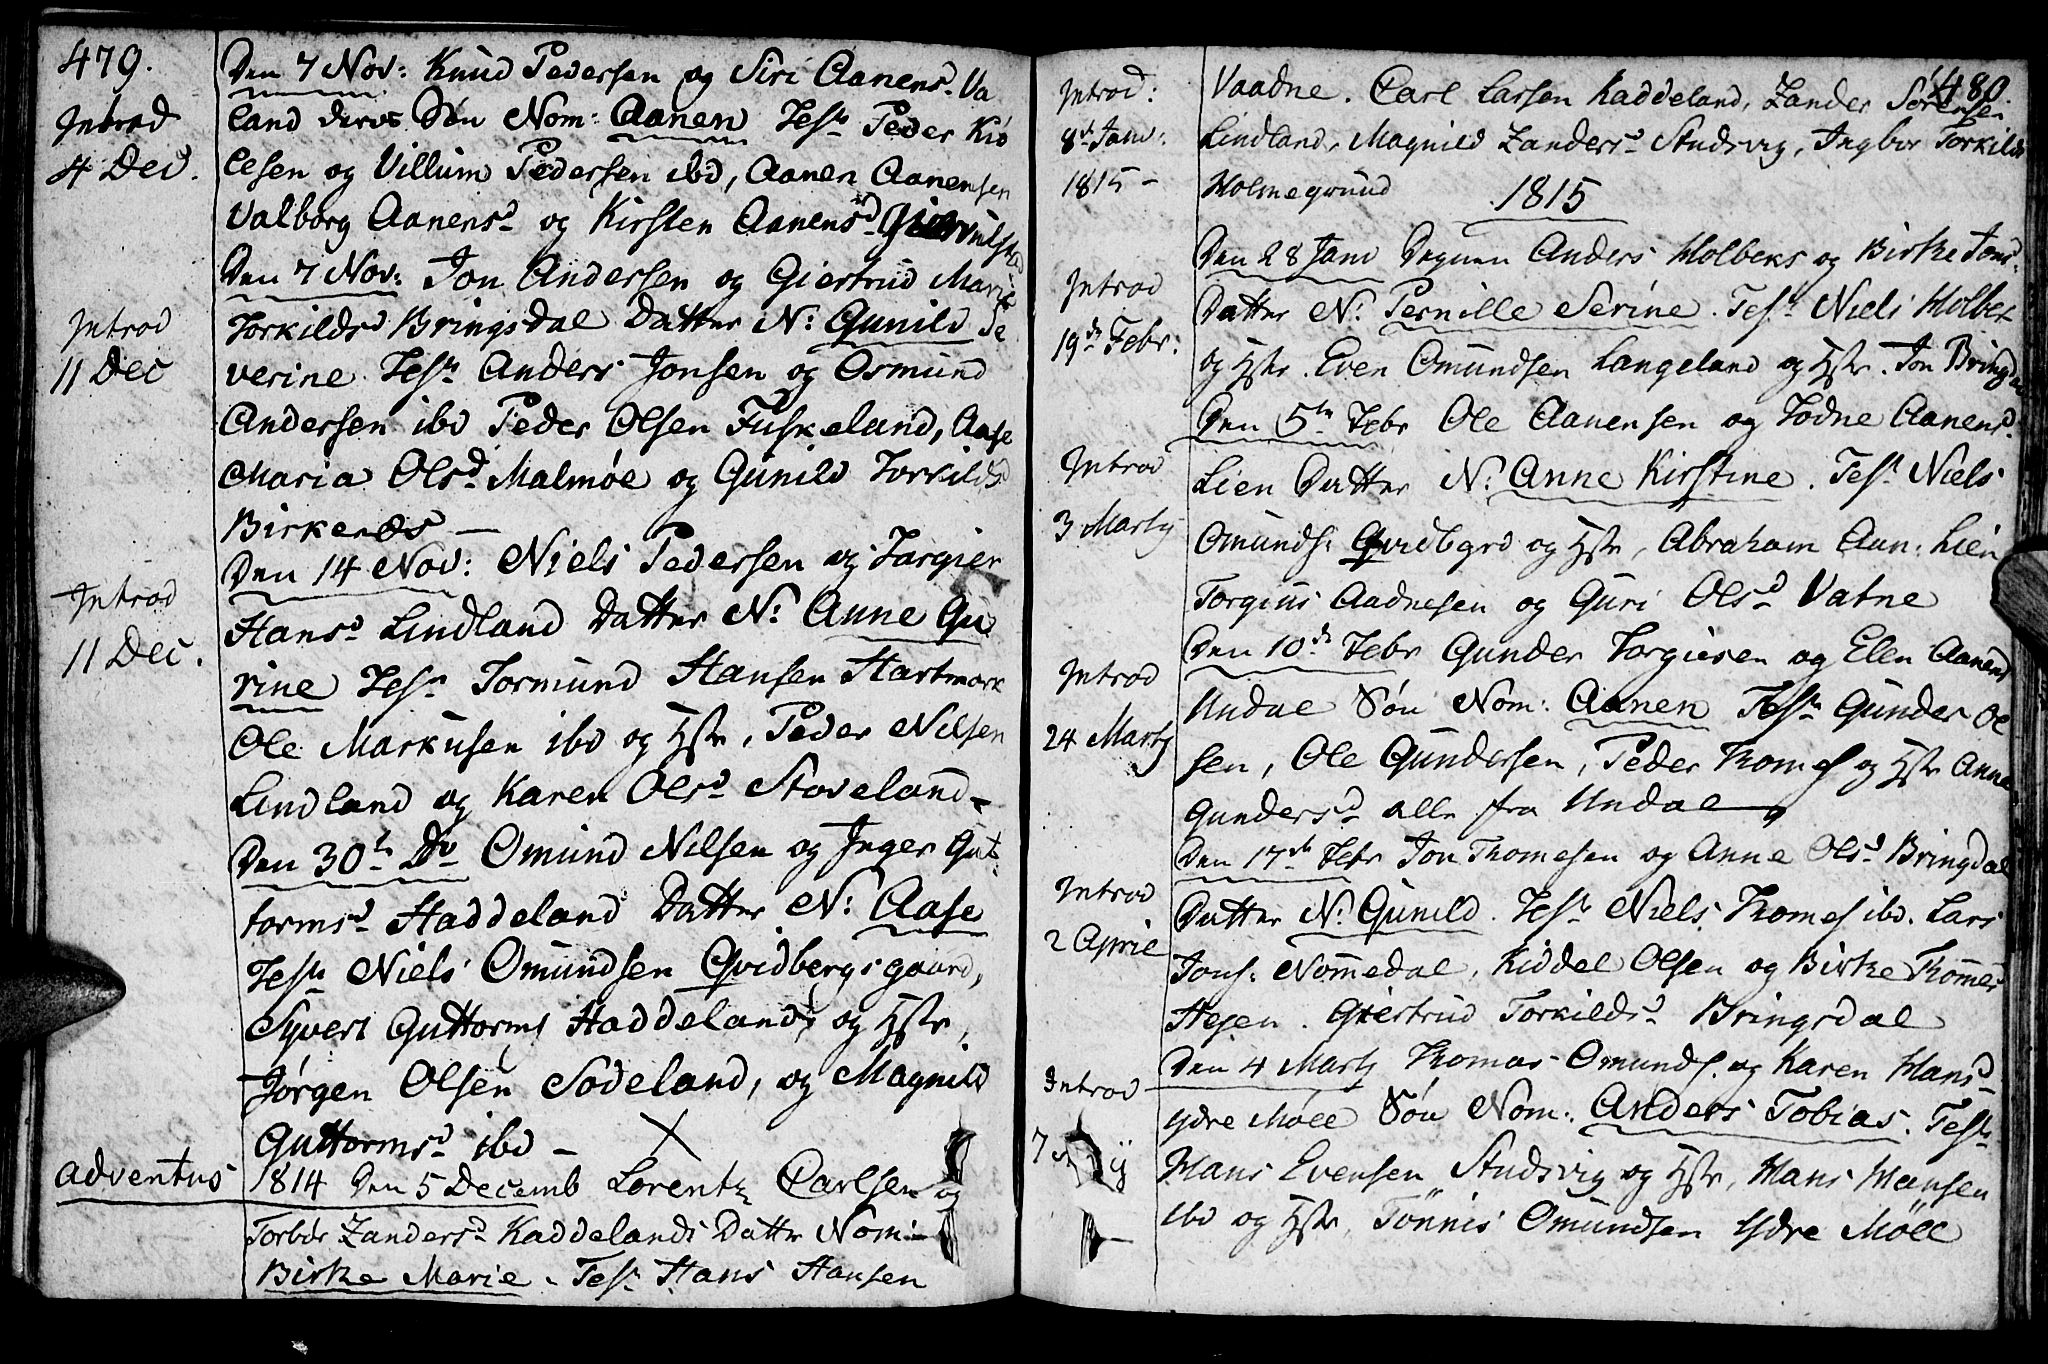 479.
Introd
4 Dec.
Den 7 Nov: Knud Pedersen og Siri Aanensd Va
land deres Søn Nom: Aanen Test Peder Kiø
elsen og Villum Pedersen ibd, Aanen Aanensen
Valborg Aanensd og Kirsten Aanensd
Introd
11 Dec
Den 7 Nov: Jon Andersen og Giertrud Marie
Torkildsd Bringsdal Datter N: Gunild Se
verine. Test Anders Jonsen og Osmund
Andersen ibd Peder Olsen Fuskeland, Aase
Maria Olsd Malmøe og Gunild Torkildsd
Birkenæs —
Introd
11 Dec.
Den 14 Nov: Niels Pedersen og Targier
Hansd Lindland Datter N: Anne Gu
rine Test Tormund Hansen Hartmark
Ole Markusen ibd og Hstr, Peder Nilsen
Lindland og Karen Olsd Stoveland -
Den 30te Do Omund Nilsen og Inger Gut
tormsd Haddeland Datter N: Aase
Test Niels Omundsen Qvidbergsgaard,
Syvert Guttorms Haddeland, og Hstr,
Jørgen Olsen Sodeland, og Magnild
Guttormsd ibd —
Adventus
1814 Den 5 Decemb Lorentz Carlsen og
Torbør Zandersd Kaddelands Datter Nom:
Birke Marie. Test Hans Hansen
480.
Introd:
8de Janu:
1815 -
Vaadne. Carl Larsen Kaddeland, Zander Sørensen
Lindland, Magnild Zandersd Studsvig, Ingbor Torkilds
Holmegrund
1815
Introd
19de Febr:
Den 28 Janu Degnen Anders Holbeks og Birke Jonsd:
Datter N: Pernille Serine. Test Niels Holbek
og Hstr. Even Omundsen Langeland og Hstr. Jon Bringsdal
Introd
3 Martj
Den 5te Febr Ole Aanensen og Todne Aanensd.
Lien Datter N: Anne Kirstine. Test Niels
Omunds: Qvidbgrd og Hstr, Abraham Aan: Lien
Torgius Aadnesen og Guri Olsd Vatne
Introd
24 Martj
Den 10de Febr Gunder Torgiusen og Elen Aanensd
Undal Søn Nom: Aanen Test Gunder Ol
sen, Ole Gundersen, Peder Thomes og Hstr Anne
Gundersd alle fra Undal
Introd
2 April
Den 17de Febr Jon Thomesen og Anne Olsd Bringsdal
Datter N: Gunild. Test Niels Thomes ibd. Lars
Jons: Nommedal, Kiddel Olsen og Birke Thomesd
Stejen. Giertrud Torkildsd Bringsdal
Introd
7
Den 4 Martj Thomas Omunds. og Karen Hansd
Ydre Møll Søn Nom: Anders Tobias. Test
Hans Evensen Studsvig og Hstr, Hans Hansen
ibd og Hstr, Tønnis Omundsen Ydre Møll